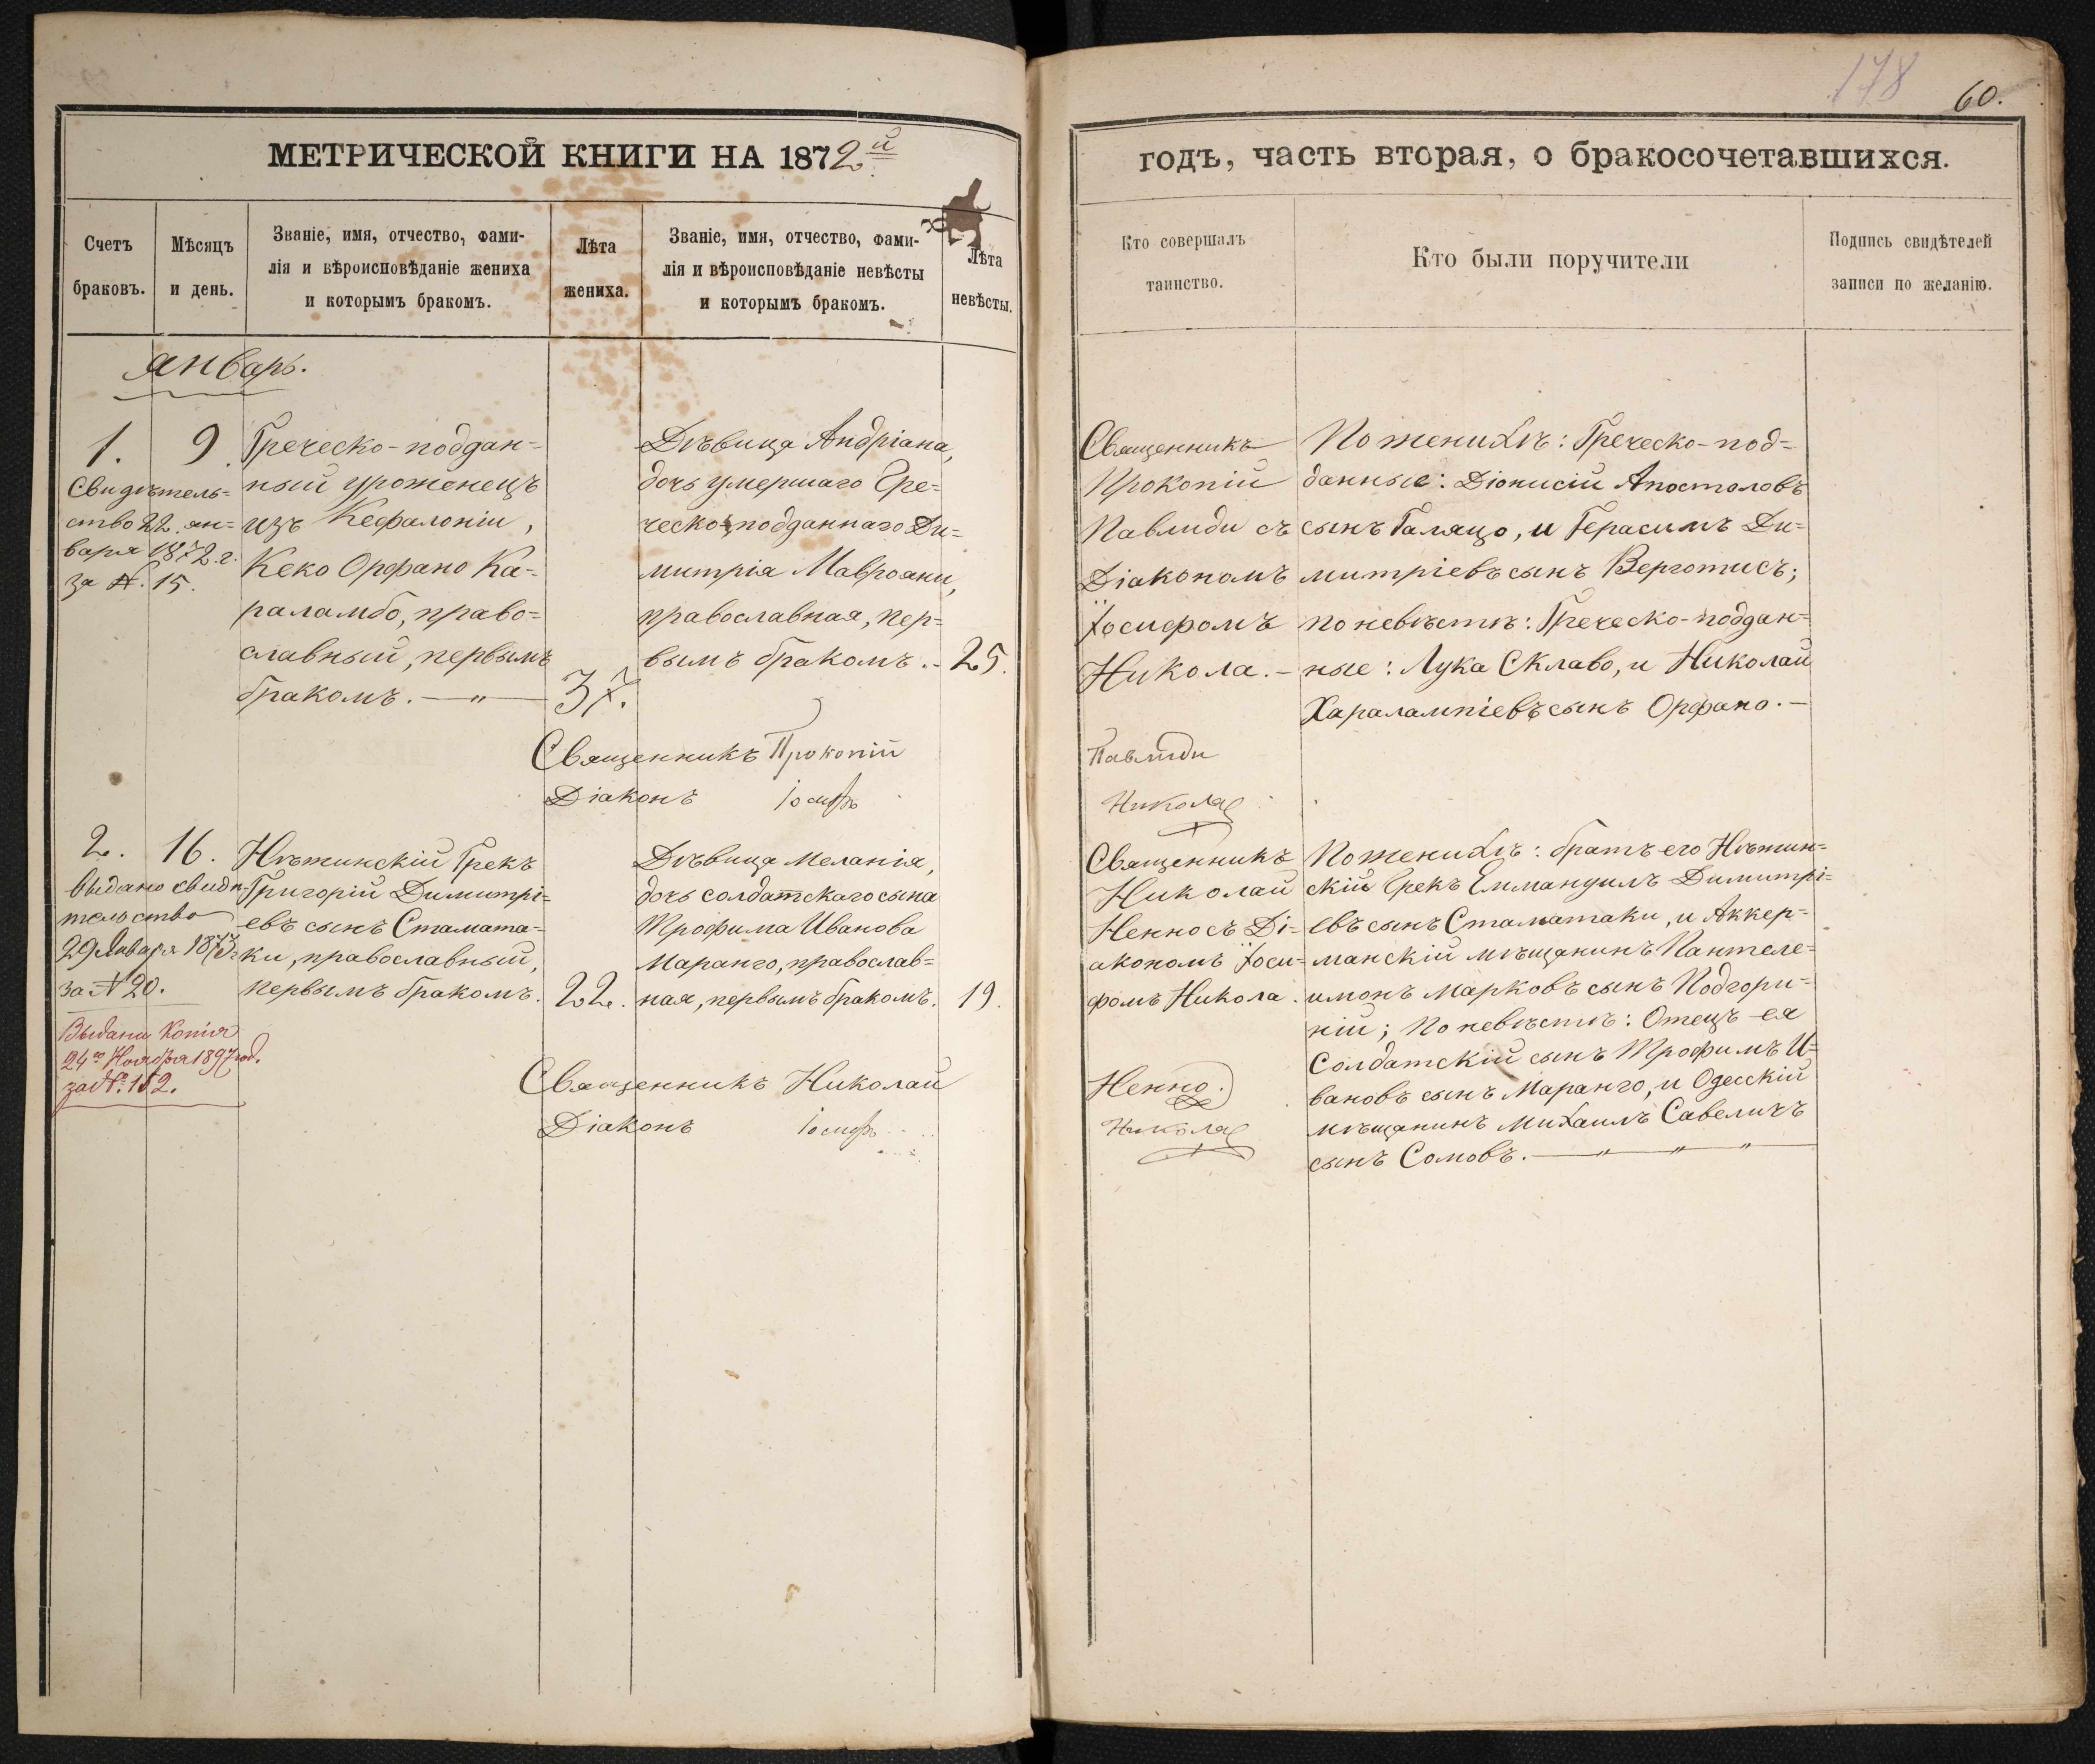 178
60.
МЕТРИЧЕСКОЙ КНИГИ НА 1872й
годъ, часть вторая, о бракосочетавшихся.
Счетъ
браковъ.
Мѣсяцъ
и день.
Званіе, имя, отчество, фами-
лія и вѣроисповѣданіе жениха
и которымъ бракомъ.
Лѣта
жениха.
Званіе, имя, отчество, фами-
лія и вѣроисповѣданіе невѣсты
и которымъ бракомъ.
Лѣта
невѣсты.
Кто совершалъ
таинство.
Кто были поручители
Подпись свидѣтелей
записи по желанію.
Январь.
1.
9.
Свидѣтель=
ство 22. ян=
варя 1872. г.
за №. 15.
Греческо-поддан=
ный уроженецъ
изъ Кефалоніи,
Кеко Орфано Ка-
раламбо, право=
славный, первымъ
бракомъ. — „ —
37.
Дѣвица Андріана,
дочь умершаго Гре=
ческо-подданнаго Ди=
митрія Маврояни,
православная, пер=
вымъ бракомъ. -
25.
Священникъ
Прокопій
Павлиди съ
Діакономъ
Іосифомъ
Никола. -
По женихѣ: Греческо-под=
данные: Діонисій Апостоловъ
сынъ Галяцо, и Герасимъ Ди=
митріевъ сынъ Верготисъ;
по невѣстѣ: Греческо-поддан=
ные: Лука Склаво, и Николай
Харалампіевъ сынъ Орфано. -
Священникъ Прокопій Павлиди
Діаконъ Іосифъ Никола
2.
16.
Выдано свидѣ-
тельство
29 Января 1873 г.
за № 20.
Выдана Копія
24го Ноября 1897 год.
за №. 152.
Нѣжинскій Грекъ
Григорій Димитрі=
евъ сынъ Стамата-
ки, православный,
первымъ бракомъ.
22.
Дѣвица Меланія,
дочь солдатскаго сына
Трофима Иванова
Маранго, православ=
ная, первымъ бракомъ.
19.
Священникъ
Николай
Ненно съ Ді=
акономъ Іоси=
фомъ Никола.
По женихѣ: братъ его Нѣжин=
скій Грекъ Еммануилъ Димитрі=
евъ сынъ Стаматаки, и Аккер=
манскій мѣщанинъ Пантеле=
имонъ Марковъ сынъ Подгори=
ній; По невѣстѣ: Отецъ ея
Солдатскій сынъ Трофимъ И=
вановъ сынъ Маранго, и Одесскій
мѣщанинъ Михаилъ Савеличъ
сынъ Сомовъ. — „ — „ — „ —
Священникъ Николай Ненно.
Діаконъ Іосифъ Никола